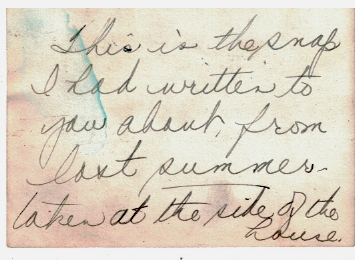 This is the snap
I had written to
you about, from
last summer.
taken at the side of the
house.